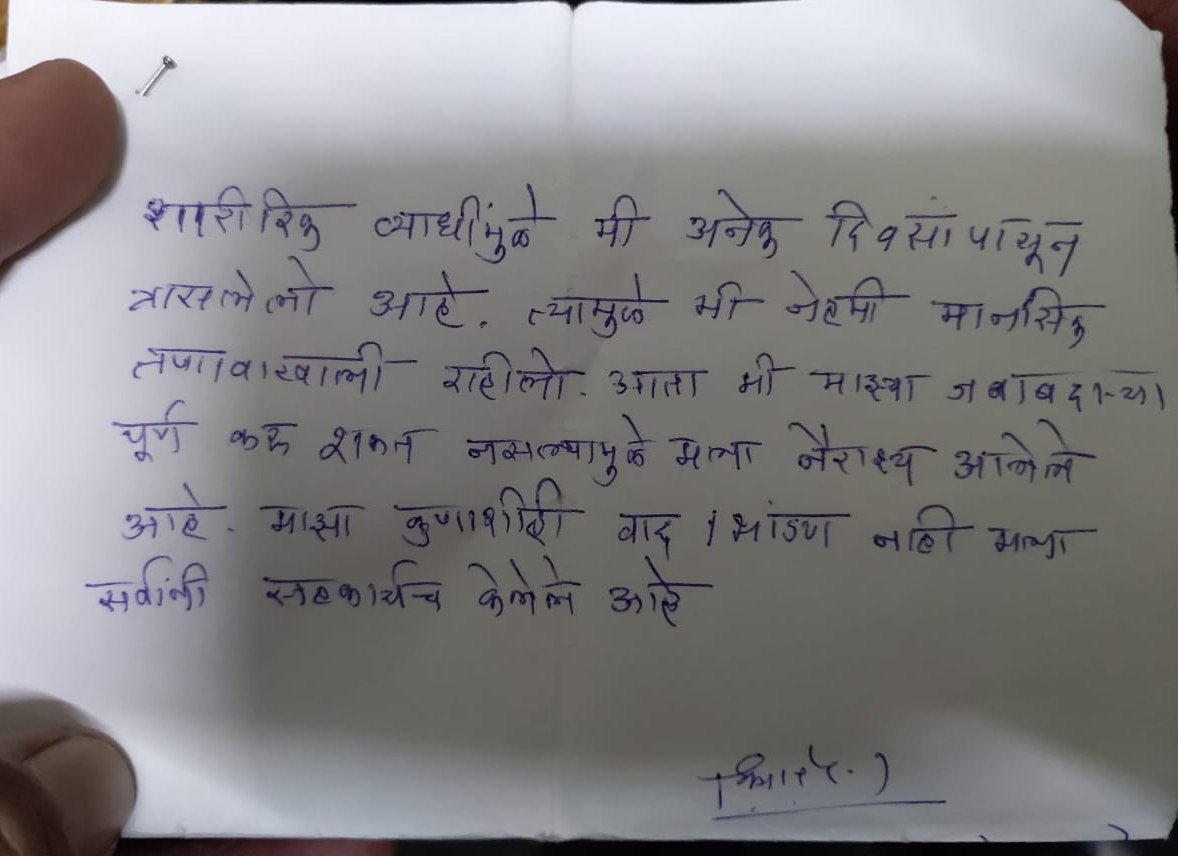 शारीरिक व्याधींमुळे मी अनेक दिवसांपासून
त्रासलेलो आहे. त्यामुळे मी नेहमी मानसिक
तणावाखाली राहीलो. आता मी माझ्या जबाबदाऱ्या
पूर्ण करू शकत नसल्यामुळे मला नैराश्य आलेले
आहे. माझा कुणाशीही वाद / भांडण नाही मला
सर्वांनी सहकार्यच केलेले आहे